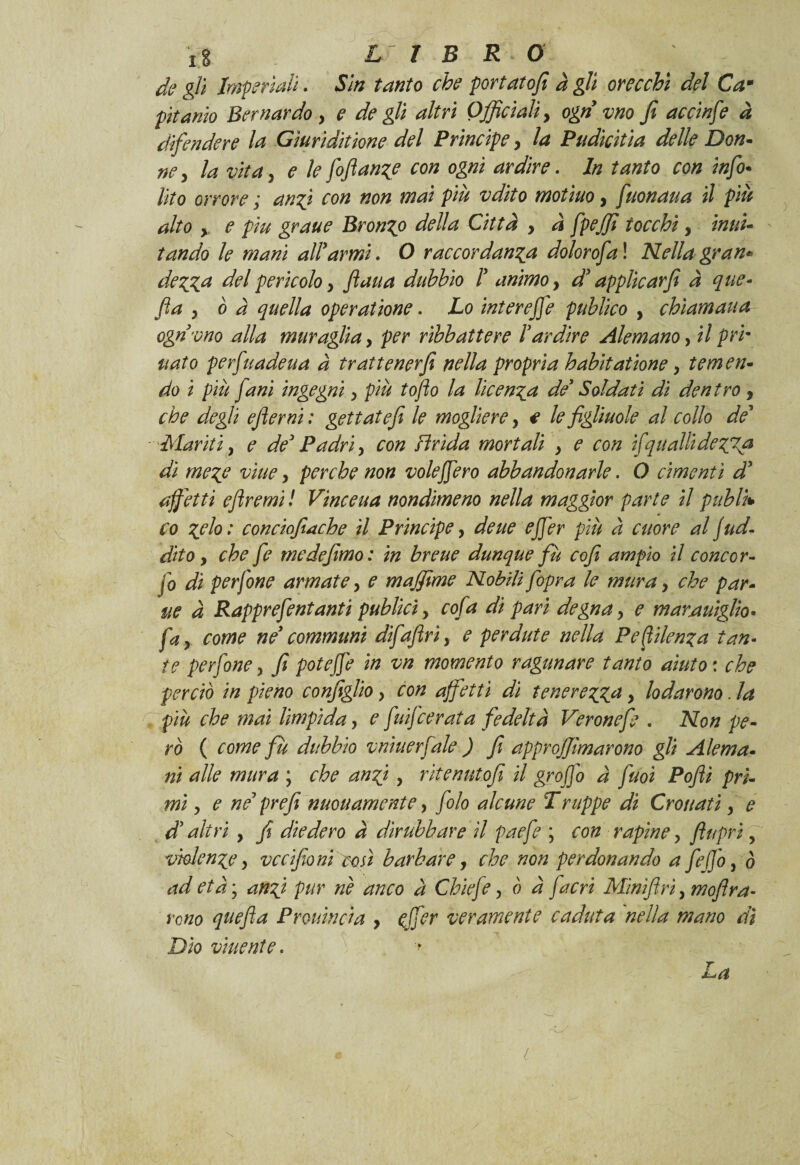 18 LIBRO
de gli Imperiali. Sin tanto che portatoſi à gli orecchi del Ca-
pitanio Bernardo, e de gli altri Officiali, ogn' vno ſi accinſe à
difendere la Giuriditione del Principe, la Pudicitia delle Don-
ne, la vita, e le ſoſtanze con ogni ardire. In tanto con inſo-
lito orrore; anzi con non mai più vdito motiuo, ſuonaua il più
alto, e piu graue Bronzo della Città, à ſpeſſi tocchi, inui-
tando le mani all'armi. O raccordanza doloroſa! Nella gran-
dezza del pericolo, ſtaua dubbio l' animo, d' applicarſi à que-
ſta, ò à quella operatione. Lo intereſſe publico, chiamaua
ogn'vno alla muraglia, per ribbattere l'ardire Alemano, il pri-
uato perſuadeua à trattenerſi nella propria habitatione, temen-
do i più ſani ingegni, più toſto la licenza de' Soldati di dentro,
che degli eſterni: gettateſi le mogliere, e le figliuole al collo de'
Mariti, e de' Padri, con ſtrida mortali, e con iſquallidezza
di meze viue, perche non voleſſero abbandonarle. O cimenti d'
affetti eſtremi! Vinceua nondimeno nella maggior parte il publi-
co zelo: concioſiache il Principe, deue eſſer più à cuore al ſud-
dito, che ſe medeſimo: in breue dunque fù coſi ampio il concor-
ſo di perſone armate, e maſſime Nobili ſopra le mura, che par-
ue à Rappreſentanti publici, coſa di pari degna, e marauiglio-
ſa, come ne' communi diſaſtri, e perdute nella Peſtilenza tan-
te perſone, ſi poteſſe in vn momento ragunare tanto aiuto: che
perciò in pieno conſiglio, con affetti di tenerezza, lodarono la
più che mai limpida, e ſuiſcerata fedeltà Veroneſe. Non pe-
rò ( come fù dubbio vniuerſale ) ſi approſſimarono gli Alema-
ni alle mura; che anzi, ritenutoſi il groſſo à ſuoi Poſti pri-
mi, e ne' preſi nuouamente, ſolo alcune Truppe di Crouati, e
d' altri, ſi diedero à dirubbare il paeſe; con rapine, ſtupri,
violenze, vcciſioni così barbare, che non perdonando a ſeſſo, ò
ad età; anzi pur nè anco à Chieſe, ò à ſacri Miniſtri, moſtra-
rono queſta Prouincia, eſſer veramente caduta nella mano di
Dio viuente.
La